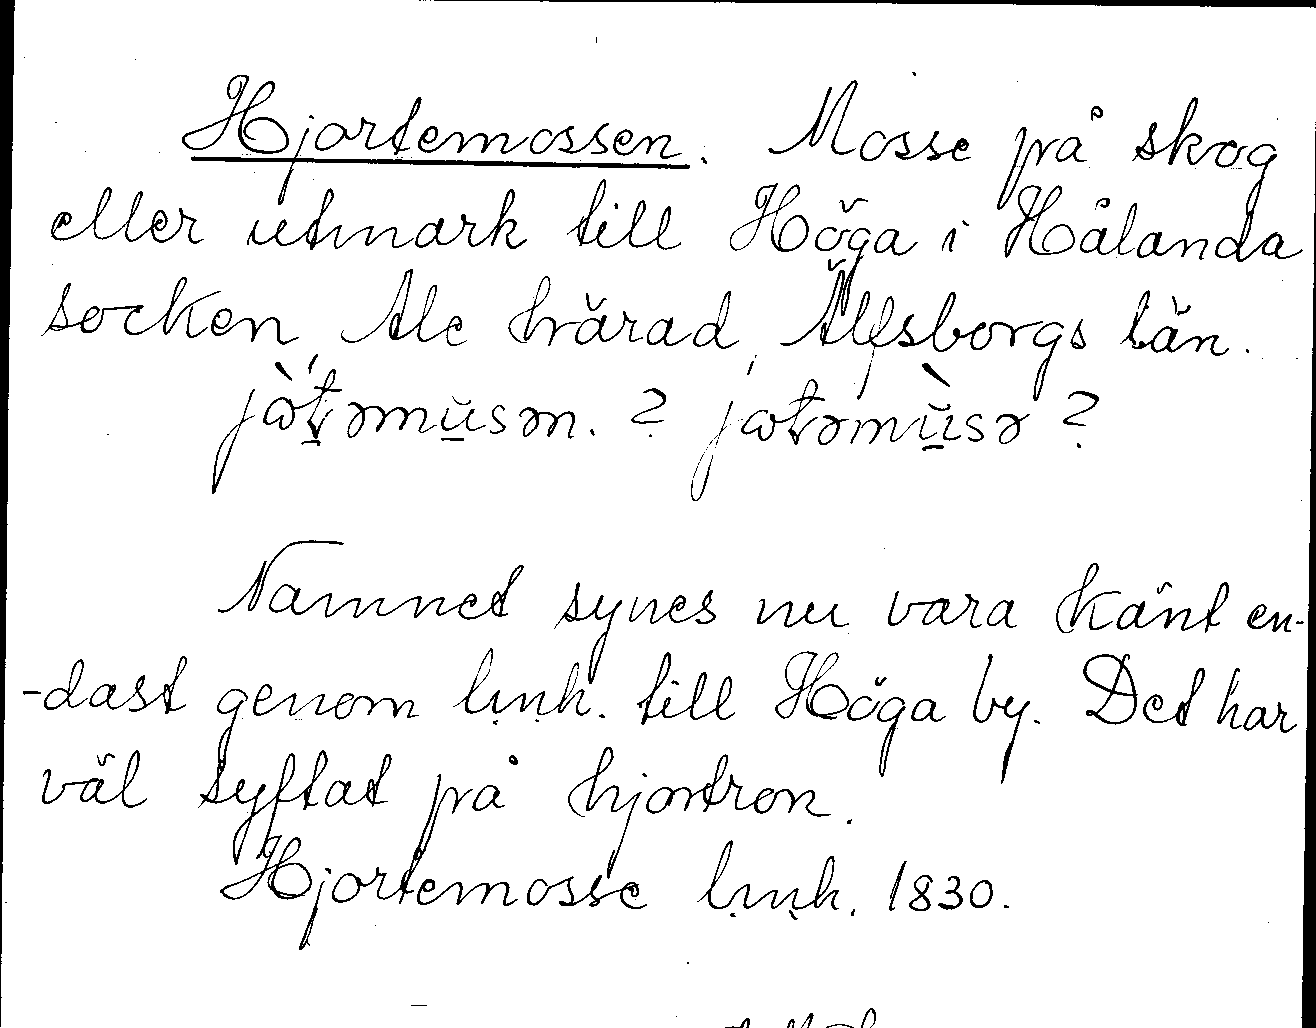 Hjortemossen. Mosse på skog
eller utmark till Höga i Hålanda
socken, Ale härad, Älfsborgs län.
jàt̠əmu̠sən. ? jatəmù̠sə ?
Namnet synes nu vara känt en-
-dast genom lmk. till Höga by. Det har
väl syftat på hjortron.
Hjortemosse lmk. 1830.